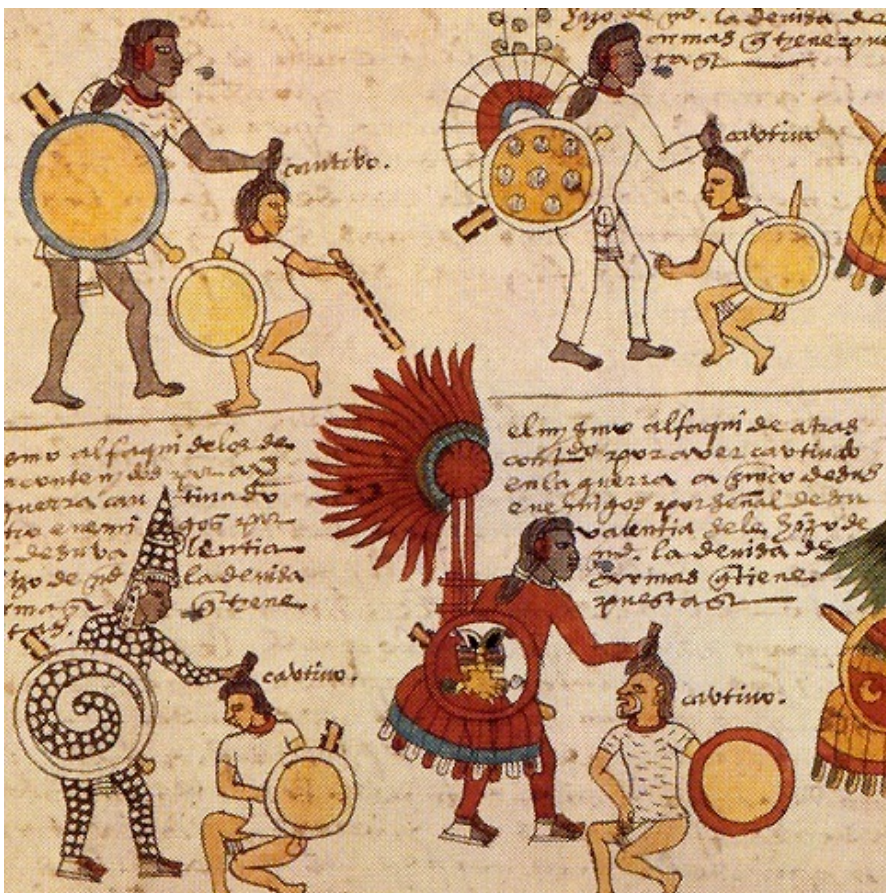 hizo de md. la devisa de
armas q̄ tiene pue
tas
cautibo.
cautivo
smo alfaqui de los de
contenidos por
guerra cautivado
tro enemigos por
de su valentia
hizo de md la devisa
rmas q̄ tiene
tas.
el mismo alfaqui de atras
contdo por aver cautivado
en la guerra a cinco de sus
enemigos por señal de su
valentia se le hizo de
md. la devisa de
armas q̄ tiene
puestas
cautivo.
cautivo.